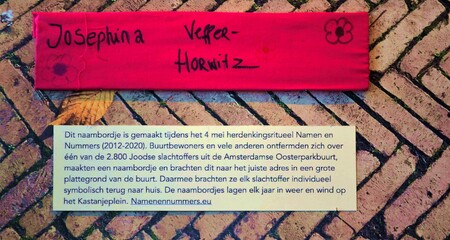 Josephina Veffer-
Horwitz
Dit naambordje is gemaakt tijdens het 4 mei herdenkingsritueel Namen en
Nummers (2012-2020). Buurtbewoners en vele anderen ontfermden zich over
één van de 2.800 Joodse slachtoffers uit de Amsterdamse Oosterparkbuurt,
maakten een naambordje en brachten dit naar het juiste adres in een grote
plattegrond van de buurt. Daarmee brachten ze elk slachtoffer individueel
symbolisch terug naar huis. De naambordjes lagen elk jaar in weer en wind op
het Kastanjeplein. Namenennummers.eu